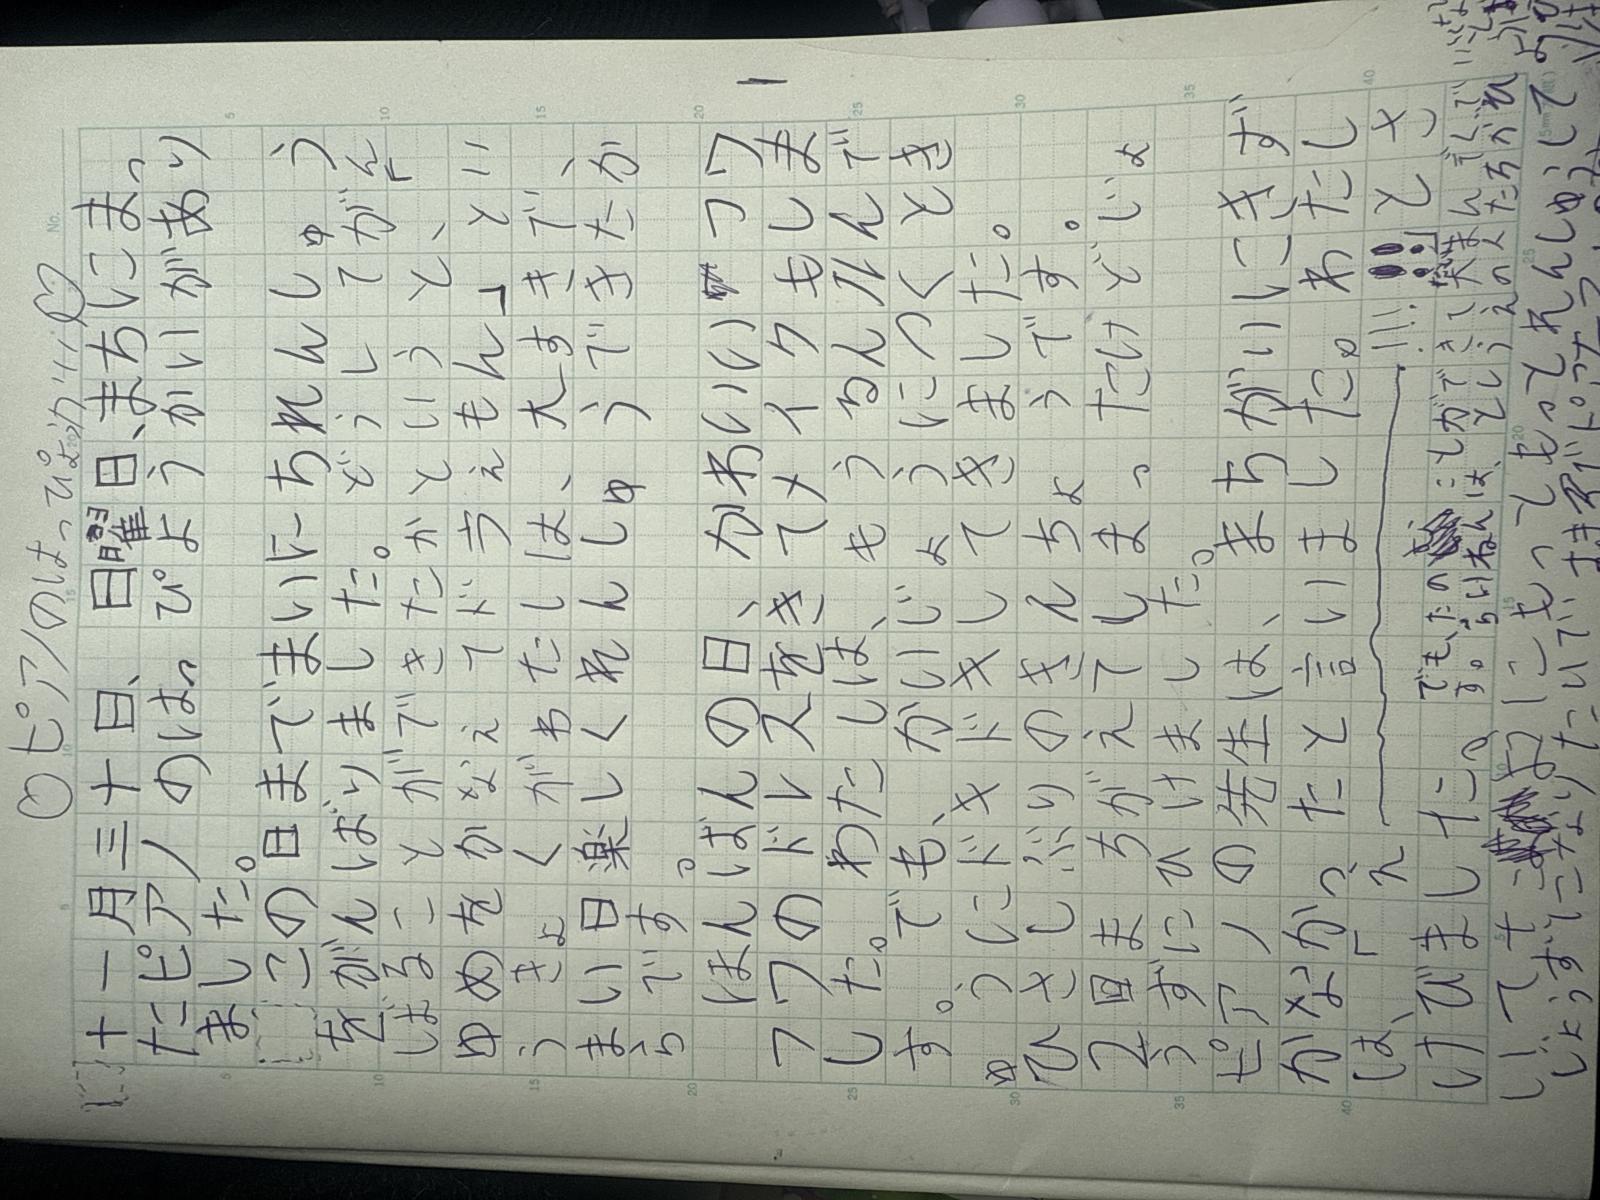 ○ピアノのはっぴょうかい♡
十一月三十日、日曜日、まちにまっ
たピアノのはっぴようかいがあり
ました。
この日まで、まいにちれんしゅう
をがんばりました。どうしてがん
ばることができたかというと、「
ゆめをかなえてドラえもん」とい
うきょくがわたしは、大すきで、
まい日楽しくれんしゅうできたか
らです。
ほんばんの日、かわいいフワ
フワのドレスをきてメイクもしま
した。わたしは、もうるんるんで
す。でも、かいじょうにつくとき
ゅうにドキドキしてきました。
ひさしぶりのきんちょうです。
2回まちがえてしまったけどじょ
うずにひけました。
ピアノの先生は、まちがいにきず
かなかったと言いました。わたし
は、「えーーー!!!!」とさ
けびました。
でも、たの ことができて まんぞくで
す。らいねんは、
もっともってれんしゅうして
じょうずになりたいです